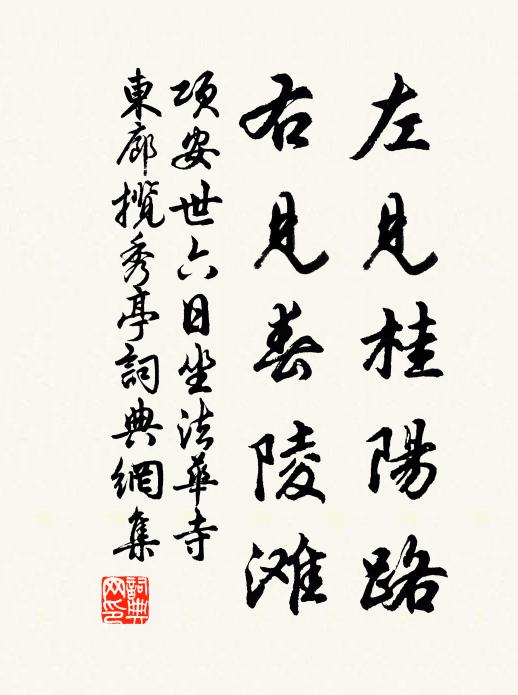 左見桂陽路
右見春陵滩
項安世六日坐法華寺
東廊攬秀亭詞典網集
詞典
网印